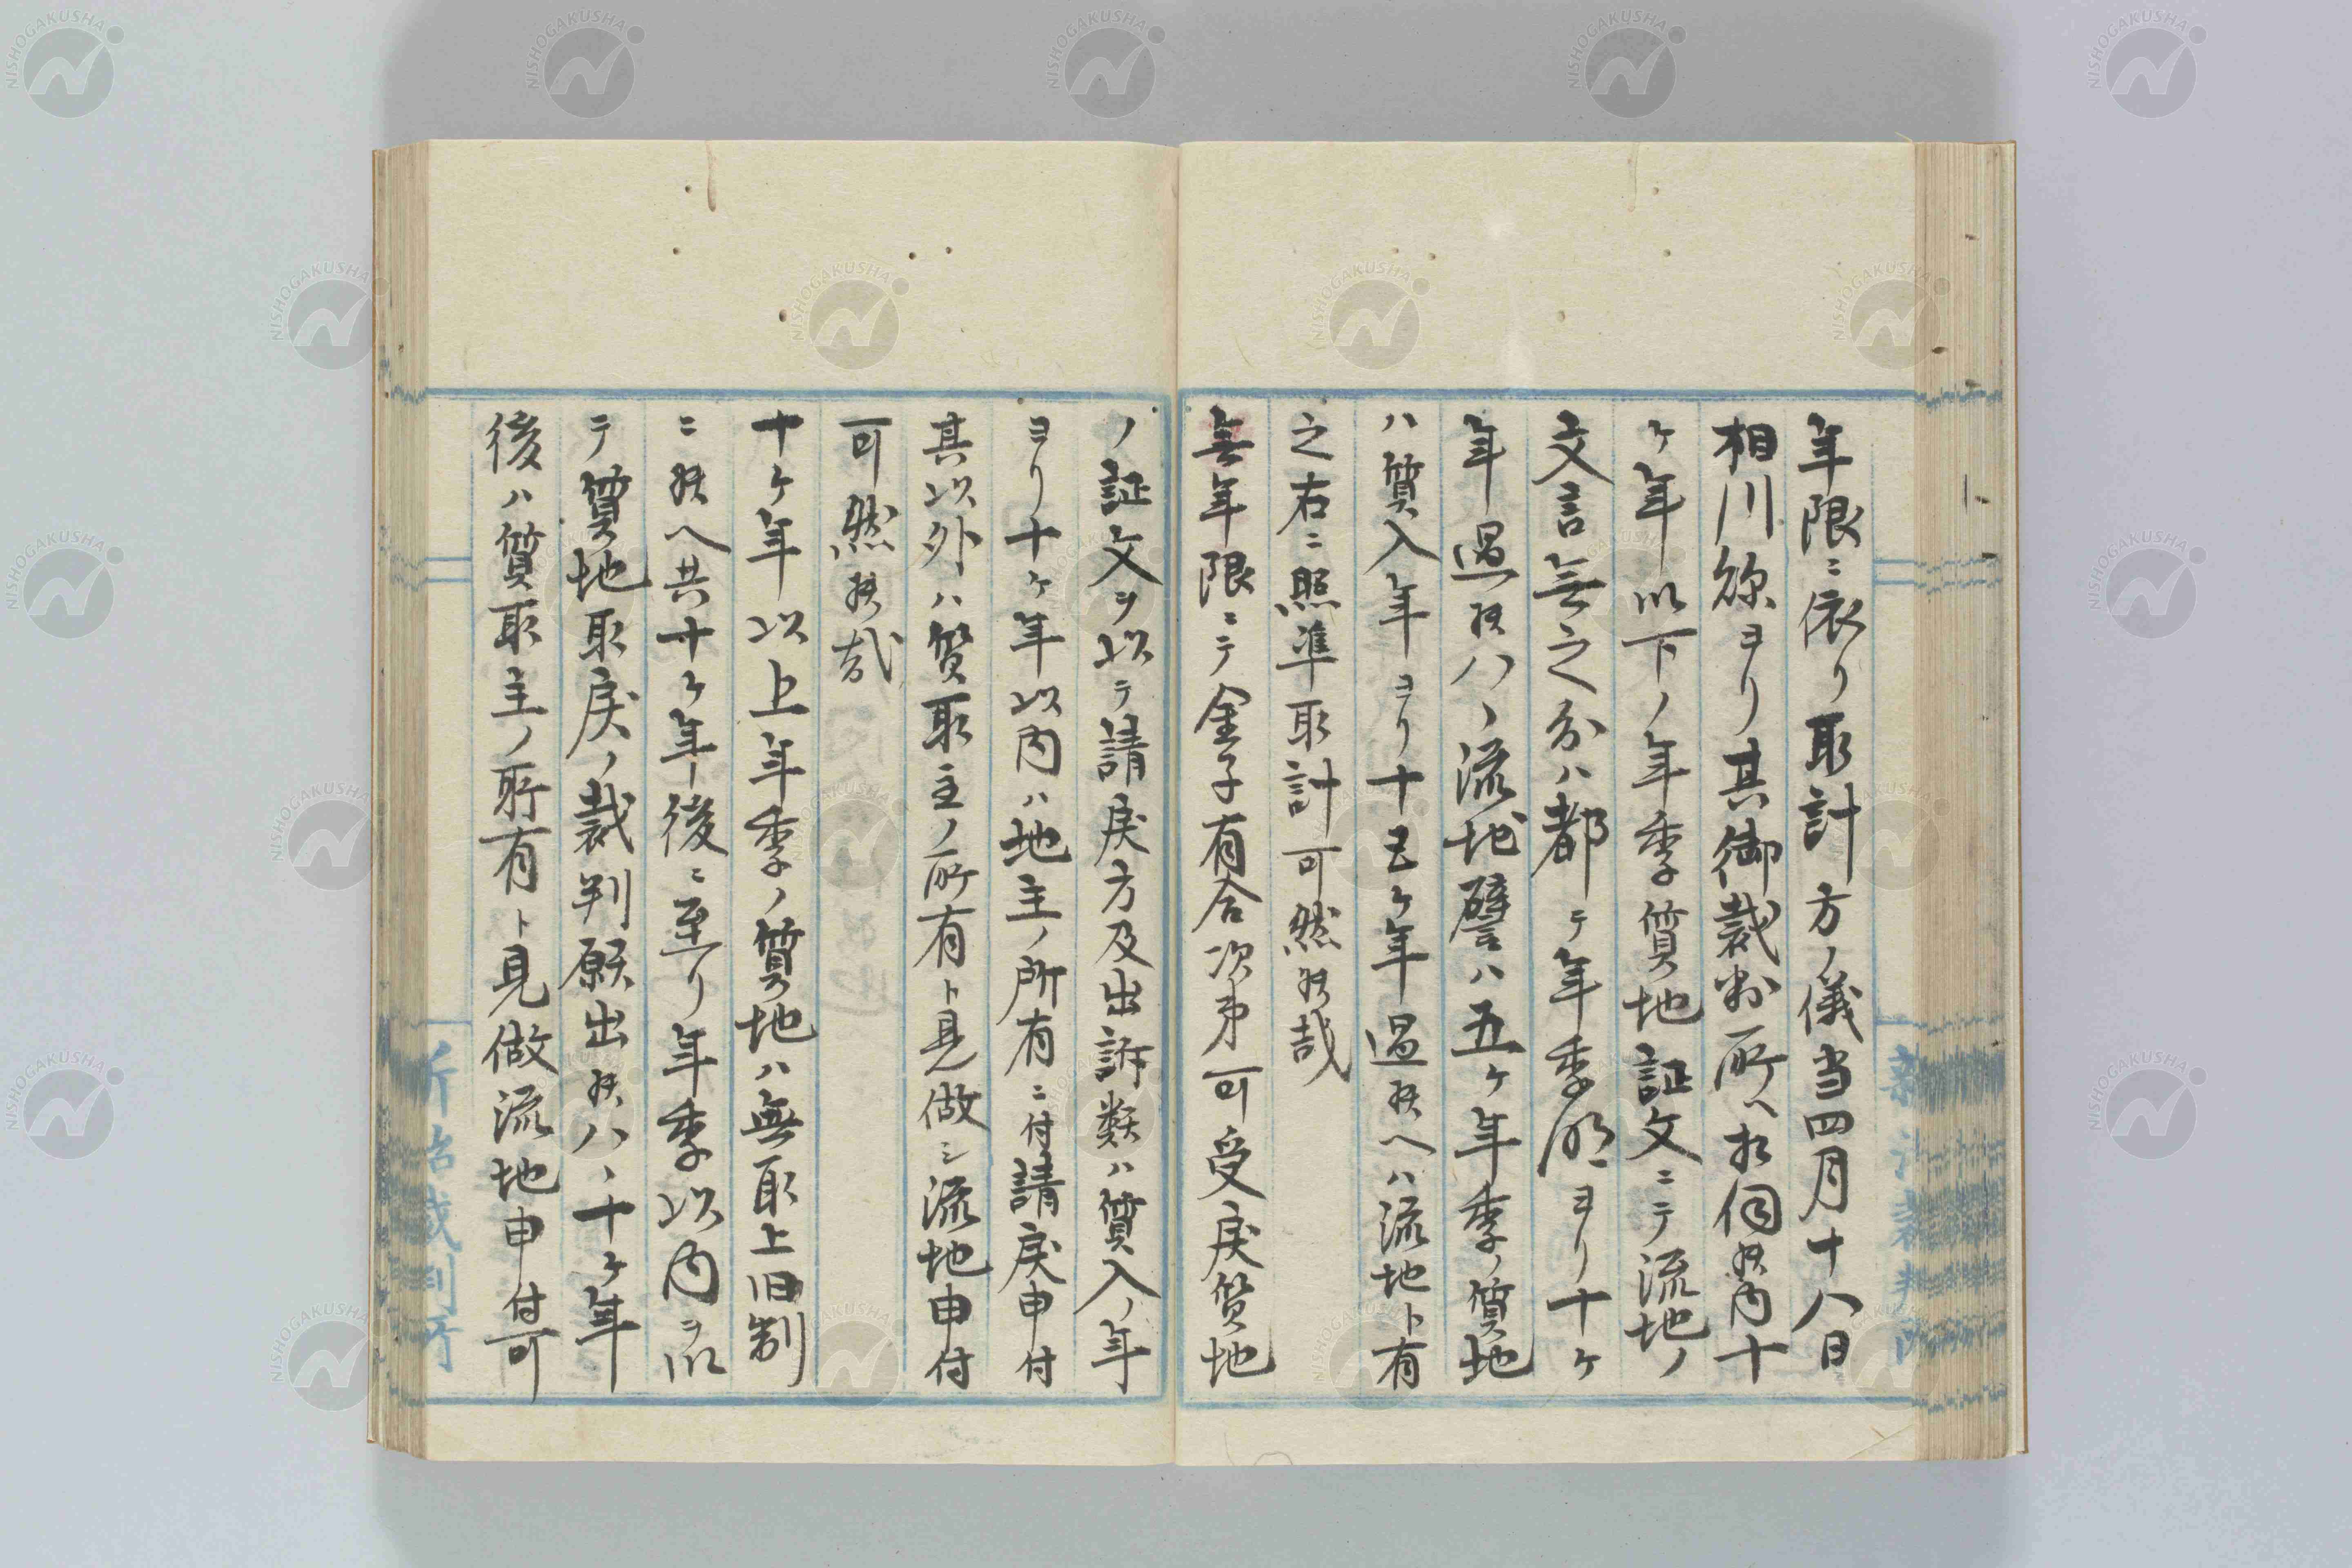 年限ニ依リ取計方ノ儀当四月十八日
相川縣ヨリ其御裁判所ヘ相伺候内十
ケ年以下ノ年季質地証文ニテ流地ノ
文言無之分ハ都テ年季明ヨリ十ケ
年過候ハヽ流地譬ハ五ケ年季ノ質地
ハ質入年ヨリ十五ケ年過候ヘハ流地ト有
之右ニ照準取計可然候哉
無年限ニテ金子有合次第可受戻質地
ノ証文ヲ以テ請戻方及出訴類ハ質入ノ年
ヨリ十ケ年以内ハ地主ノ所有ニ付請戻申付
其以外ハ質取主ノ所有ト見做シ流地申付
可然候哉
十ケ年以上年季ノ質地ハ無取上旧制
ニ候ヘ共十ケ年後ニ至リ年季以内ヲ以
テ質地取戻ノ裁判願出候ハヽ十ケ年
後ハ質取主ノ所有ト見做流地申付可
NISHOGAKUSHA